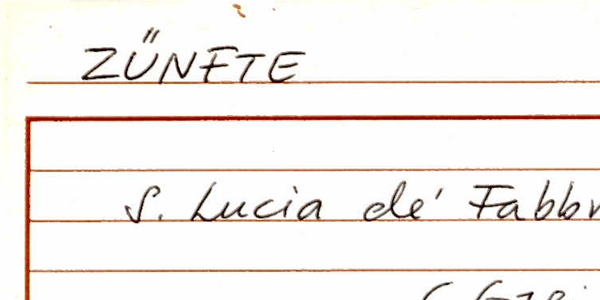 ZÜNFTE
S. Lucia dé' Fabbr